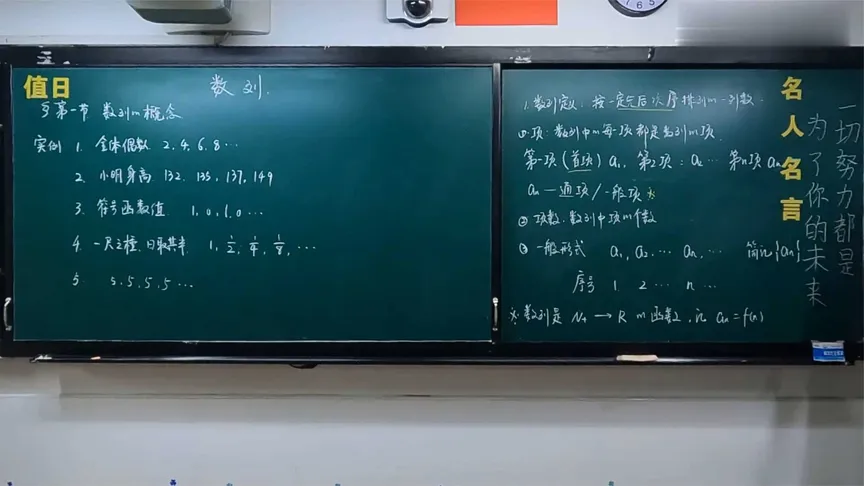 值日
数列.
§第一节 数列的概念
实例 1. 全体偶数 2, 4, 6, 8 …
2. 小明身高 132. 135, 137, 149
3. 符号函数值 1, 0, 1, 0 …
4. 一尺之棰, 日取其半 1, 1/2, 1/4, 1/8, …
5. 5, 5, 5, 5 …
1. 数列定义: 按一定先后次序排列的一列数.
① 项: 数列中的每一项都是数列的项.
第一项 (首项) a₁, 第2项: a₂ … 第n项 aₙ
aₙ — 通项/一般项 ※
② 项数: 数列中项的个数
③ 一般形式 a₁, a₂, … aₙ, … 简记 {aₙ}
序号 1 2 … n …
※ 数列是 N₊ → R 的函数, 记 aₙ = f(n)
名人名言
一切努力都是
为了你的未来